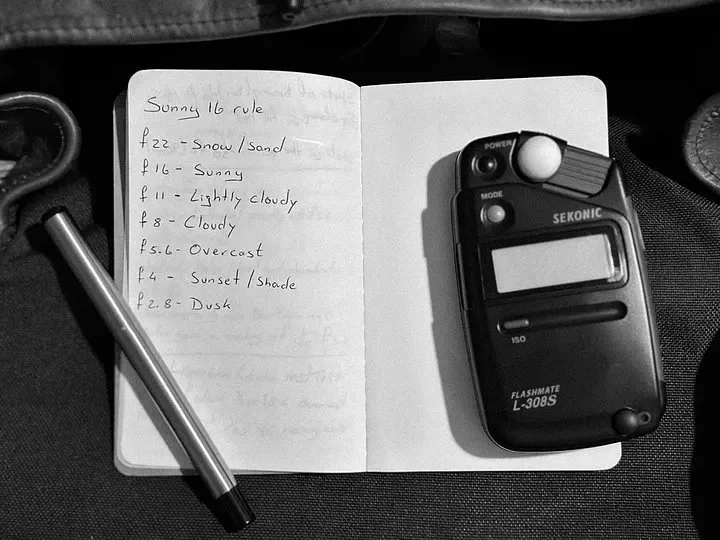 Sunny 16 rule
f22 - Snow/Sand
f16 - Sunny
f11 - Lightly cloudy
f8 - Cloudy
f5.6 - Overcast
f4 - Sunset/Shade
f2.8 - Dusk
POWER
MODE
SEKONIC
ISO
FLASHMATE
L-308S